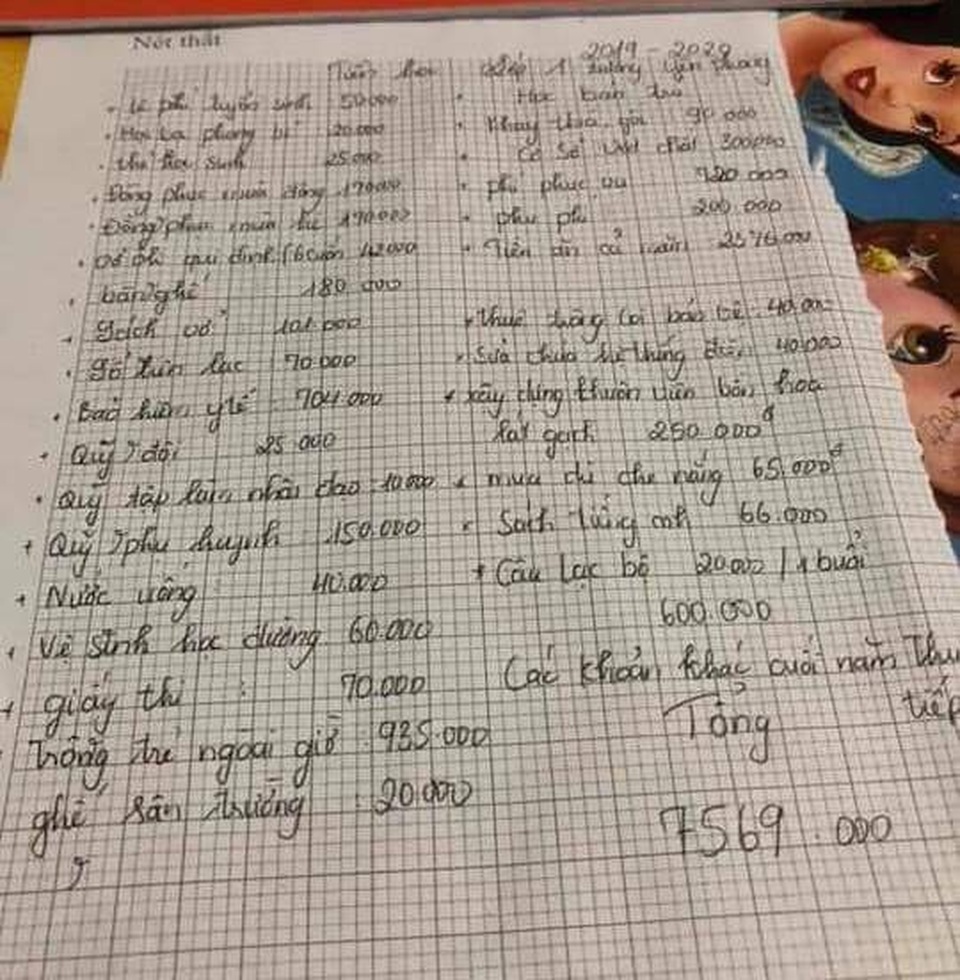 Nét thắt
2019 - 2020
Tiền học lớp 1 trường Yên Phong
Lệ phí tuyển sinh 50.000
Học bạ phong bì 20.000
thẻ học sinh 25.000
Đồng phục mùa đông 170.000
Đồng phục mùa hè 170.000
Vở ôli qui định (6 cuốn 42.000
bàn ghế 180.000
Sách vở 101.000
Sổ liên lạc 70.000
Bảo hiểm y tế 704.000
Quỹ đội 25.000
Quỹ tấp lòng nhân đạo 10.000
Quỹ phụ huynh 150.000
Nước uống 40.000
Vệ sinh học đường 60.000
giấy thi : 70.000
Trông trẻ ngoài giờ 935.000
ghế sân trường : 20.000
Học bán trú
Khay thìa, gối 90.000
Cơ Sở Vật chất 300.000
phí phục vụ 720.000
phụ phí 200.000
Tiền ăn cả năm 2576.000
thuê trông coi bảo vệ 40.000
Sửa chữa hệ thống điện 40.000
xây dựng khuôn viên bồn hoa
lát gạch 250.000đ
mua dù che nắng 65.000đ
Sách tiếng anh 66.000
Câu lạc bộ 20.000 / 1 buổi
600.000
Các khoản khác cuối năm Thu
tiếp
Tổng
7569.000